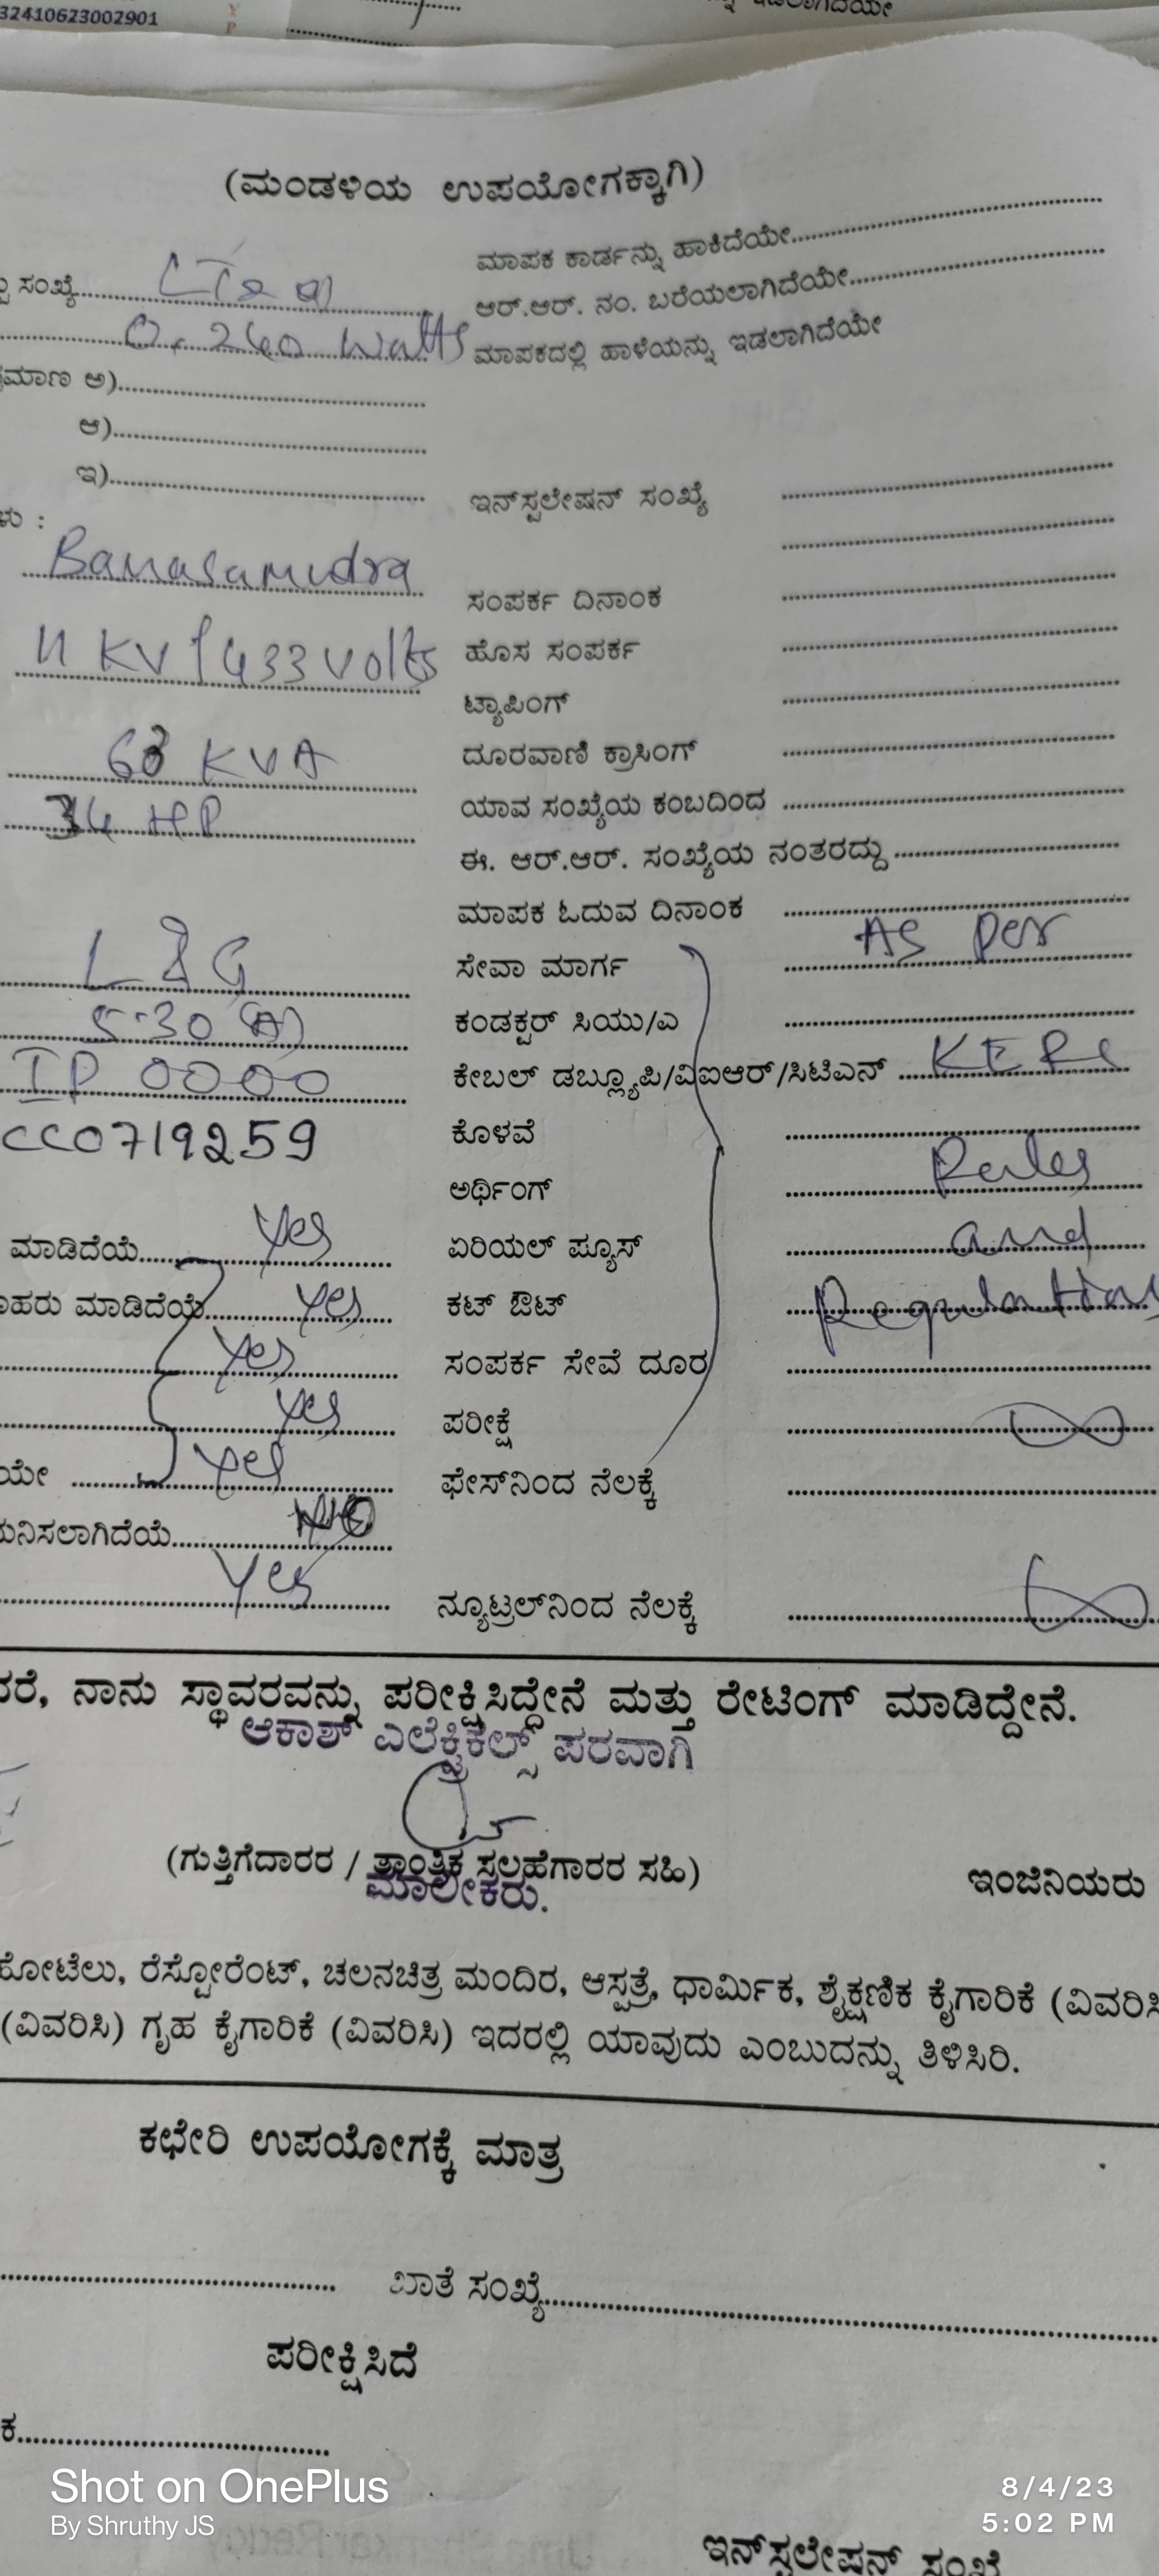 32410623002901
ಇಡಲಾಗಿದೆಯೇ
(ಮಂಡಳಿಯ ಉಪಯೋಗಕ್ಕಾಗಿ)
ಮಾಪಕ ಕಾರ್ಡನ್ನು ಹಾಕಿದೆಯೇ
ಸಂಖ್ಯೆ
ಆರ್.ಆರ್. ನಂ. ಬರೆಯಲಾಗಿದೆಯೇ
0.240 Watts ಮಾಪಕದಲ್ಲಿ ಹಾಳೆಯನ್ನು ಇಡಲಾಗಿದೆಯೇ
ಅ)
ಆ)
ಇ)
ಇನ್‌ಸ್ಪಲೇಷನ್ ಸಂಖ್ಯೆ
Banasamudra
ಸಂಪರ್ಕ ದಿನಾಂಕ
11 KV / 433 Volts ಹೊಸ ಸಂಪರ್ಕ
ಟ್ಯಾಪಿಂಗ್
63 KVA ದೂರವಾಣಿ ಕ್ರಾಸಿಂಗ್
34 HP ಯಾವ ಸಂಖ್ಯೆಯ ಕಂಬದಿಂದ
ಈ. ಆರ್.ಆರ್. ಸಂಖ್ಯೆಯ ನಂತರದ್ದು
ಮಾಪಕ ಓದುವ ದಿನಾಂಕ
L & G ಸೇವಾ ಮಾರ್ಗ As per
5-30 (A) ಕಂಡಕ್ಟರ್ ಸಿಯು/ಎ
IP 0000 ಕೇಬಲ್ ಡಬ್ಲ್ಯೂಪಿ/ವಿಐಆರ್/ಸಿಟಿಎನ್ KERC
CC0719259 ಕೊಳವೆ
ಅರ್ಥಿಂಗ್ Rules
ಮಾಡಿದೆಯೆ Yes ಏರಿಯಲ್ ಫ್ಯೂಸ್ and
ಮಾಡಿದೆಯೆ Yes ಕಟ್ ಔಟ್ Regulations
Yes ಸಂಪರ್ಕ ಸೇವೆ ದೂರ
Yes ಪರೀಕ್ಷೆ ∞
Yes ಫೇಸ್‌ನಿಂದ ನೆಲಕ್ಕೆ
Yes ನ್ಯೂಟ್ರಲ್‌ನಿಂದ ನೆಲಕ್ಕೆ ∞
ನಾನು ಸ್ಥಾವರವನ್ನು ಪರೀಕ್ಷಿಸಿದ್ದೇನೆ ಮತ್ತು ರೇಟಿಂಗ್ ಮಾಡಿದ್ದೇನೆ.
ಆಕಾಶ್ ಎಲೆಕ್ಟ್ರಿಕಲ್ಸ್ ಪರವಾಗಿ
(ಗುತ್ತಿಗೆದಾರರ / ತಾಂತ್ರಿಕ ಸಲಹೆಗಾರರ ಸಹಿ) ಇಂಜಿನಿಯರು
ಮಾಲೀಕರು.
ಹೋಟೆಲು, ರೆಸ್ಟೋರೆಂಟ್, ಚಲನಚಿತ್ರ ಮಂದಿರ, ಆಸ್ಪತ್ರೆ, ಧಾರ್ಮಿಕ, ಶೈಕ್ಷಣಿಕ ಕೈಗಾರಿಕೆ (ವಿವರಿಸಿ
(ವಿವರಿಸಿ) ಗೃಹ ಕೈಗಾರಿಕೆ (ವಿವರಿಸಿ) ಇದರಲ್ಲಿ ಯಾವುದು ಎಂಬುದನ್ನು ತಿಳಿಸಿರಿ.
ಕಛೇರಿ ಉಪಯೋಗಕ್ಕೆ ಮಾತ್ರ
ಖಾತೆ ಸಂಖ್ಯೆ
ಪರೀಕ್ಷಿಸಿದೆ
Shot on OnePlus
By Shruthy JS
8/4/23
5:02 PM
ಇನ್‌ಸ್ಪಲೇಷನ್ ಸಂಖ್ಯೆ